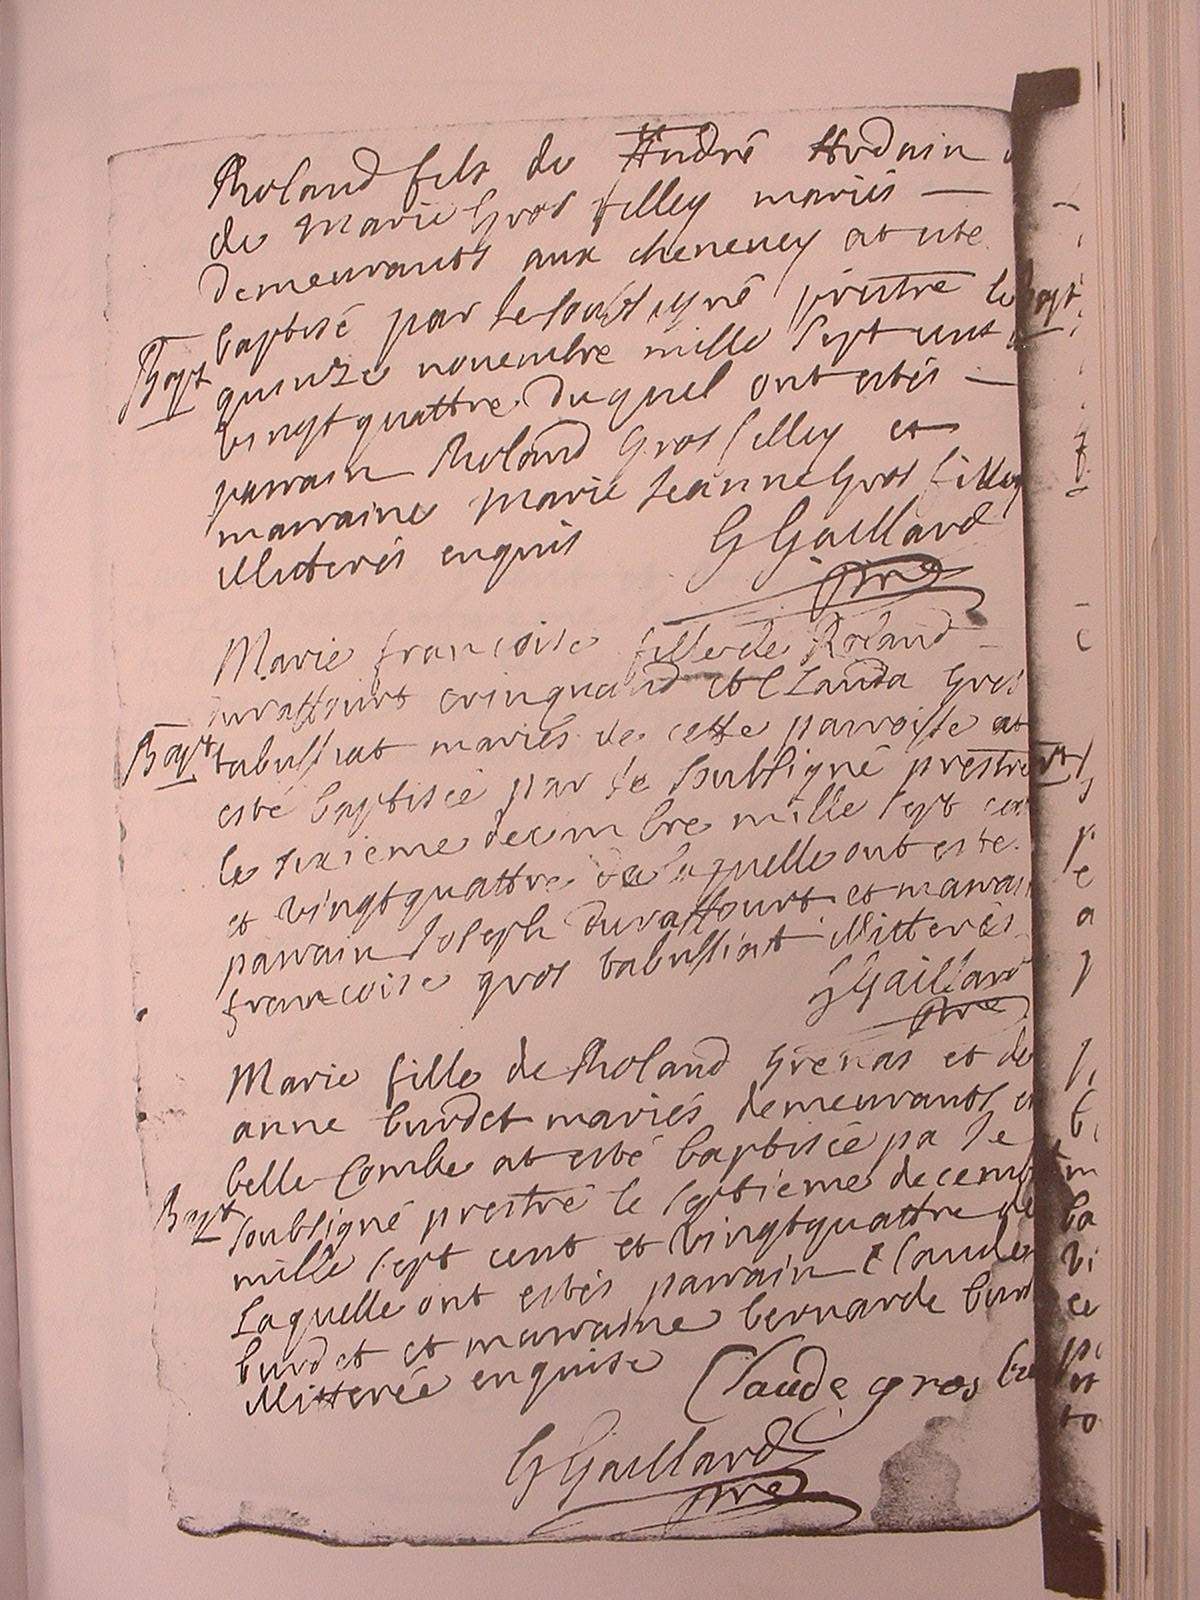 Roland fils de André Hudain
de Marie Gros filley mariés
demeurants aux cheneuey at este
Bapt baptisé par le soubsigné prestre le
quinze novembre mille sept cent
vingt quattre duquel ont estés
parrain Roland Gros filley et
marraine Marie Jeanne Gros filley
illiterés enquis G Gaillard
ptre
Marie françoise fille de Roland
duraffourt crinquand et Clauda Gros
Bapt tabussiat mariés de cette parroisse at
esté baptisée par le soubsigné prestre
le sixieme decembre mille sept cen
et vingt quattre de laquelle ont este
parrain Joseph duraffourt et marrai
françoise gros tabussiat illitterés
G Gaillard
ptre
Marie fille de Roland Grenas et de
anne burdet mariés demeurants
belle Combe at esté baptisée pa le
Bapt soubsigné prestre le septieme decemb
mille sept cent et vingt quattre de
Laquelle ont estés parrain Claude
burdet et marraine bernarde burd
illitterée enquise Claude gros
G Gaillard
ptre